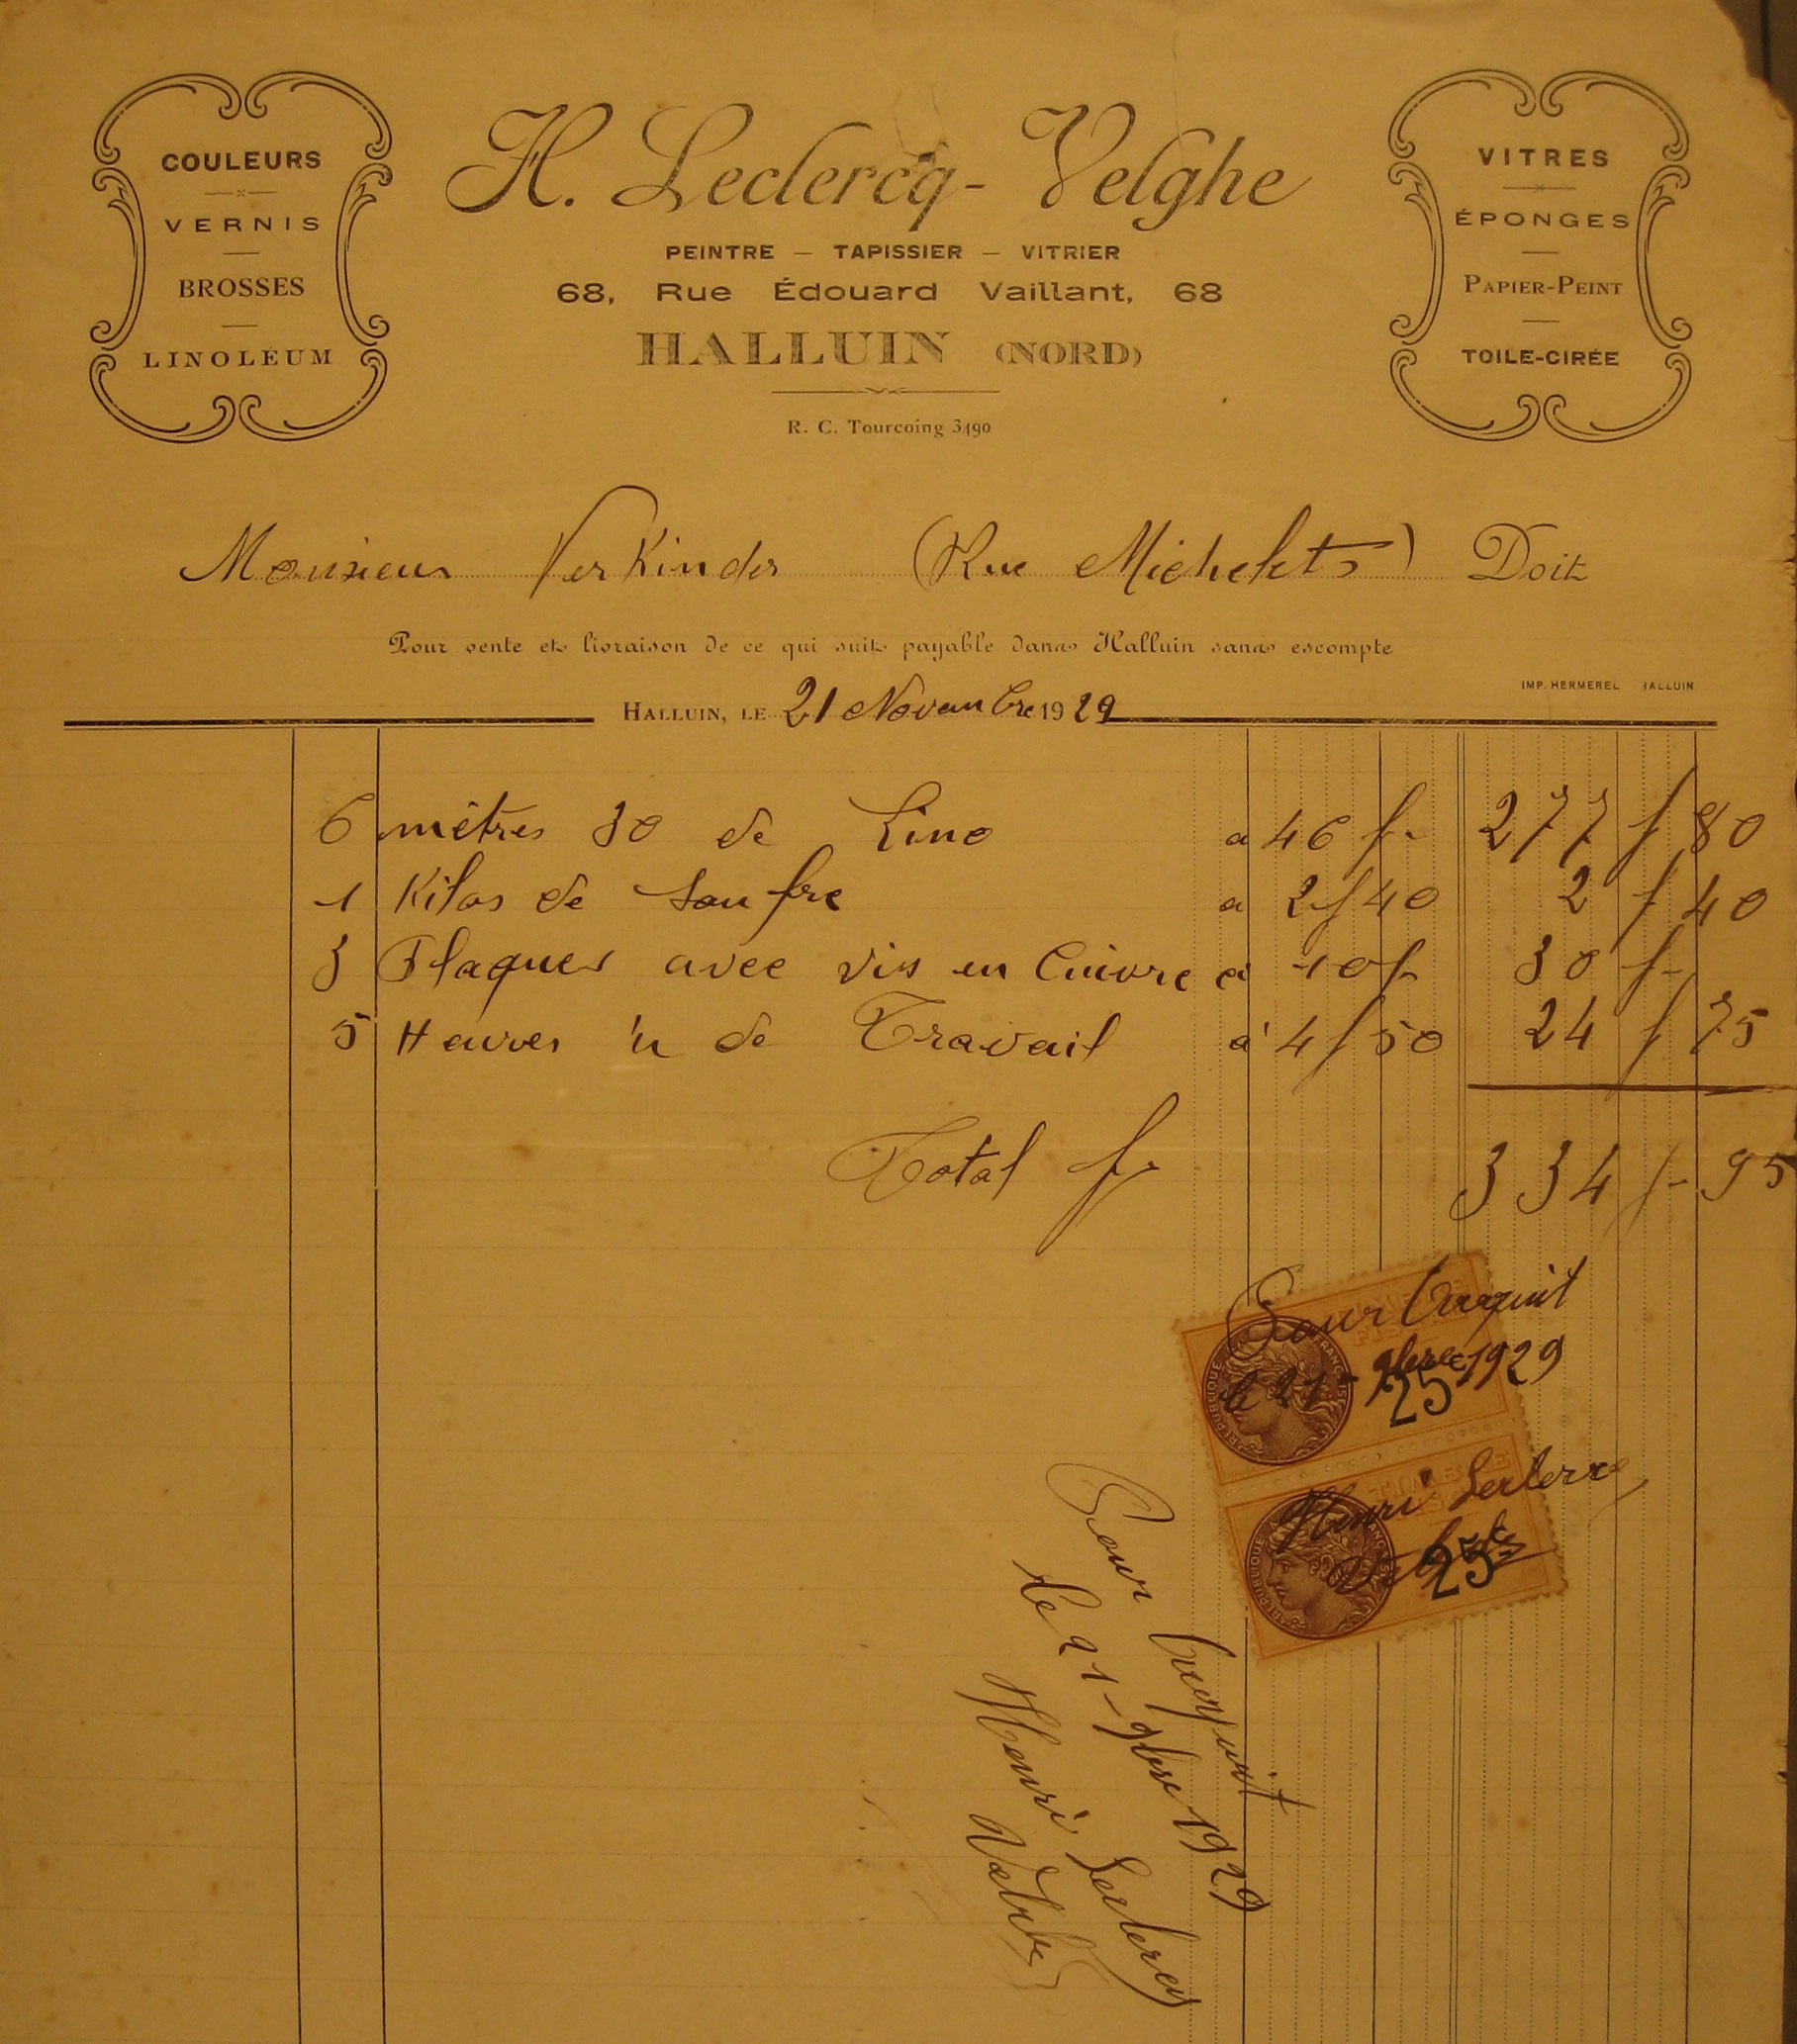 COULEURS
VERNIS
BROSSES
LINOLÉUM
H. Leclercq-Velghe
PEINTRE — TAPISSIER — VITRIER
68, Rue Édouard Vaillant, 68
HALLUIN (NORD)
R. C. Tourcoing 3490
VITRES
ÉPONGES
PAPIER-PEINT
TOILE-CIRÉE
Monsieur Verkinder (Rue Michelets) Doit
Pour vente et livraison de ce qui suit payable dans Halluin sans escompte
IMP. HERMEREL HALLUIN
HALLUIN, LE 21 Novembre 1929
6 mètres 30 de Lino a 46 f- 277 f 80
1 Kilos de Soufre a 2f40 2 f 40
3 Plaques avec vis en Cuivre à 10f 30 f-
5 Heures ½ de Travail à 4f50 24 f 75
Total f 334 f- 95
Pour Acquit
le 21-9bre 1929
25c
Henri Leclercq
Velghe
TIMBRE
25c
RÉPUBLIQUE FRANÇAISE
RÉPUBLIQUE FRANÇAISE
Pour Acquit
le 21-9bre 1929
Henri Leclercq
Velghe